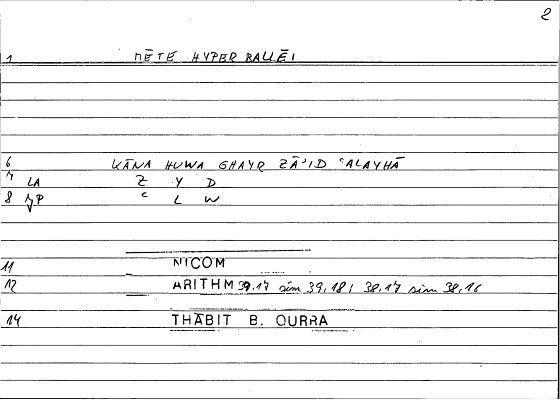 2
1 MĒTE HYPERBALLĒI
6 KĀNA HUWA GHAYR ZĀʾID ʿALAYHĀ
7 LA Z Y D
8 ʿ L W
11 NICOM
12 ARITHM 39,17 sim 39,18; 38,17 sim 38,16
14 THĀBIT B. QURRA